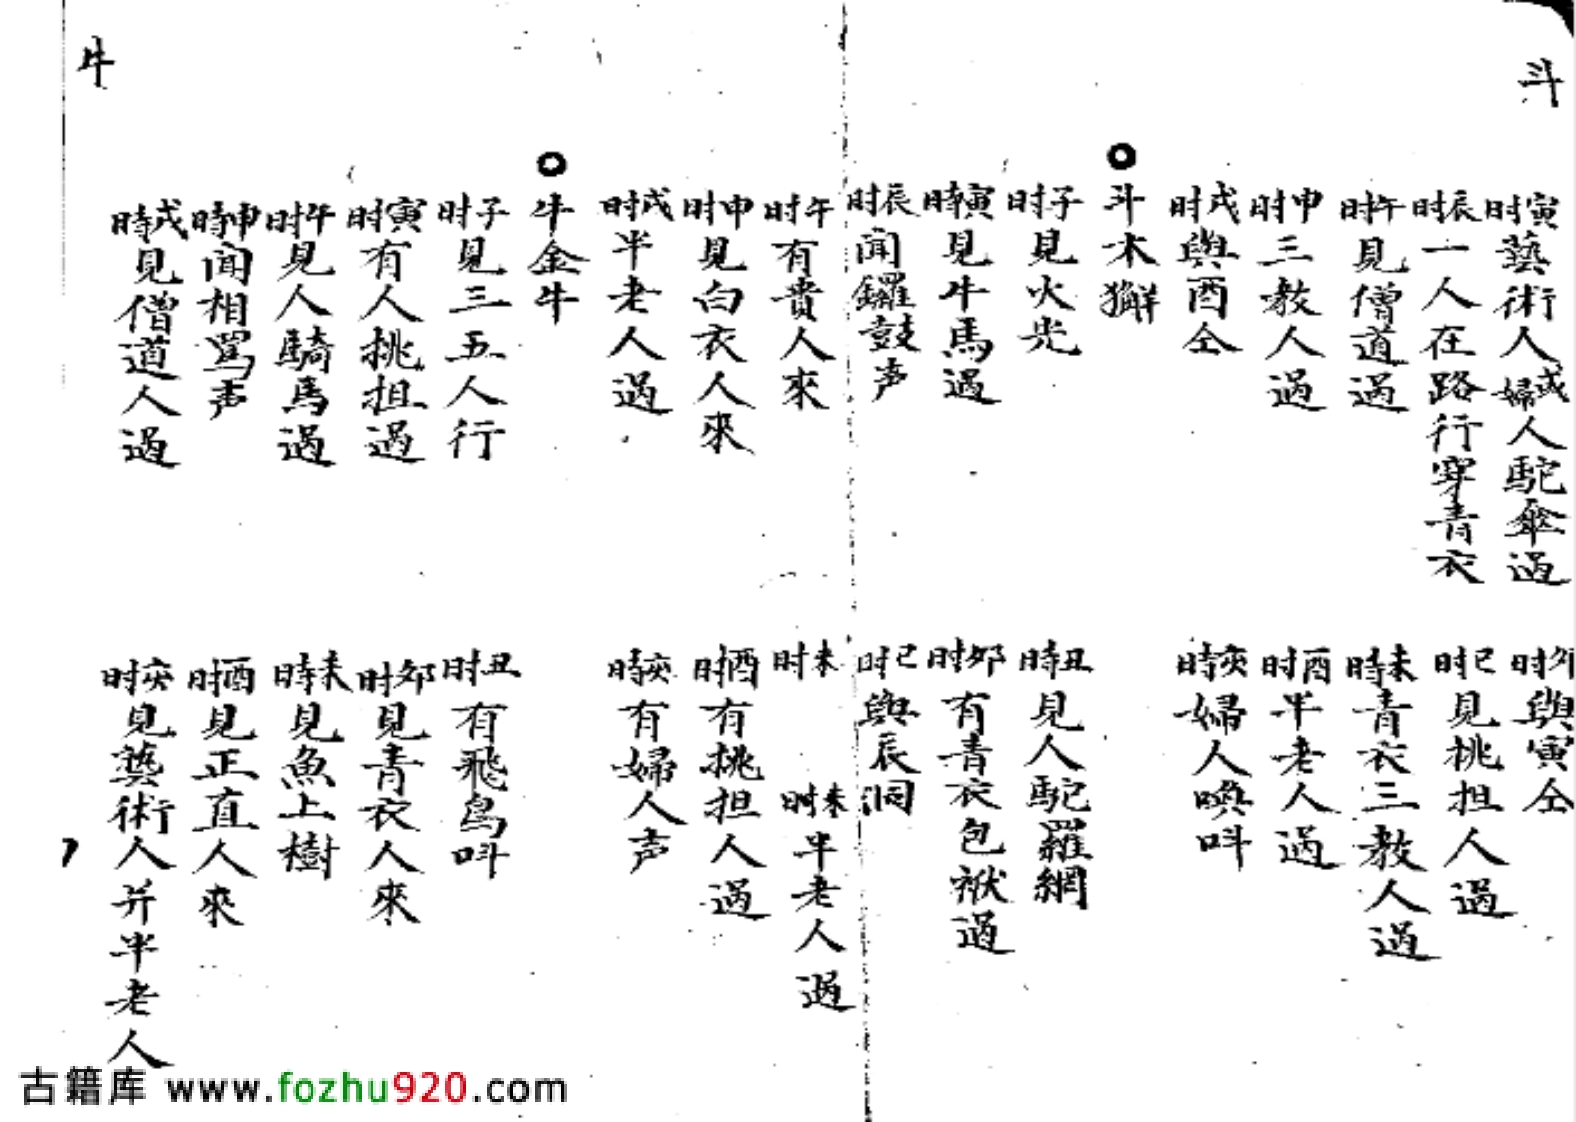 斗
寅时藝術人或婦人駝傘過
卯时與寅仝
辰时一人在路行穿青衣
巳时見挑担人過
午时見僧道過
未時青衣三教人過
申时三教人過
酉时半老人過
戌时與酉仝
亥時婦人喚呌
斗木獬
子时見火光
丑時見人駝羅網
寅時見牛馬過
卯时有青衣包袱過
辰时聞鑼鼓声
巳时與辰同
午时有貴人來
未时
未时半老人過
申时見白衣人來
酉时有挑担人過
戌时半老人過
亥時有婦人声
牛金牛
子时見三五人行
丑时有飛鳥呌
寅时有人挑担過
卯时見青衣人來
午时見人騎馬過
未時見魚上樹
申時聞相罵声
酉时見正直人來
戌時見僧道人過
亥时見藝術人并半老人
牛
古籍库 www.fozhu920.com